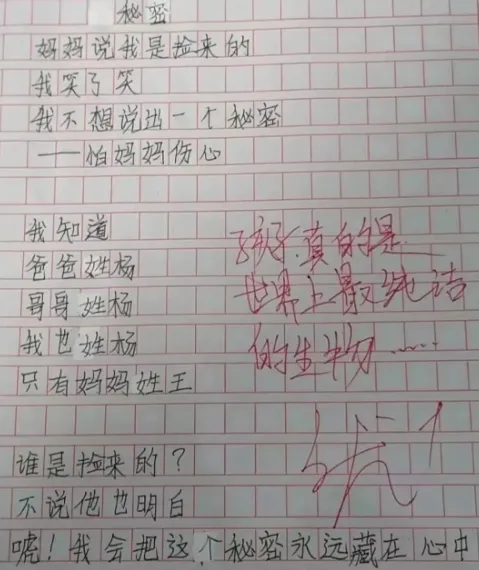 秘密
妈妈说我是捡来的
我笑了笑
我不想说出一个秘密
——怕妈妈伤心
我知道
爸爸姓杨
哥哥姓杨
我也姓杨
只有妈妈姓王
谁是捡来的？
不说他也明白
唬！我会把这个秘密永远藏在心中
孩子.真的是
世界上最纯洁
的生物……